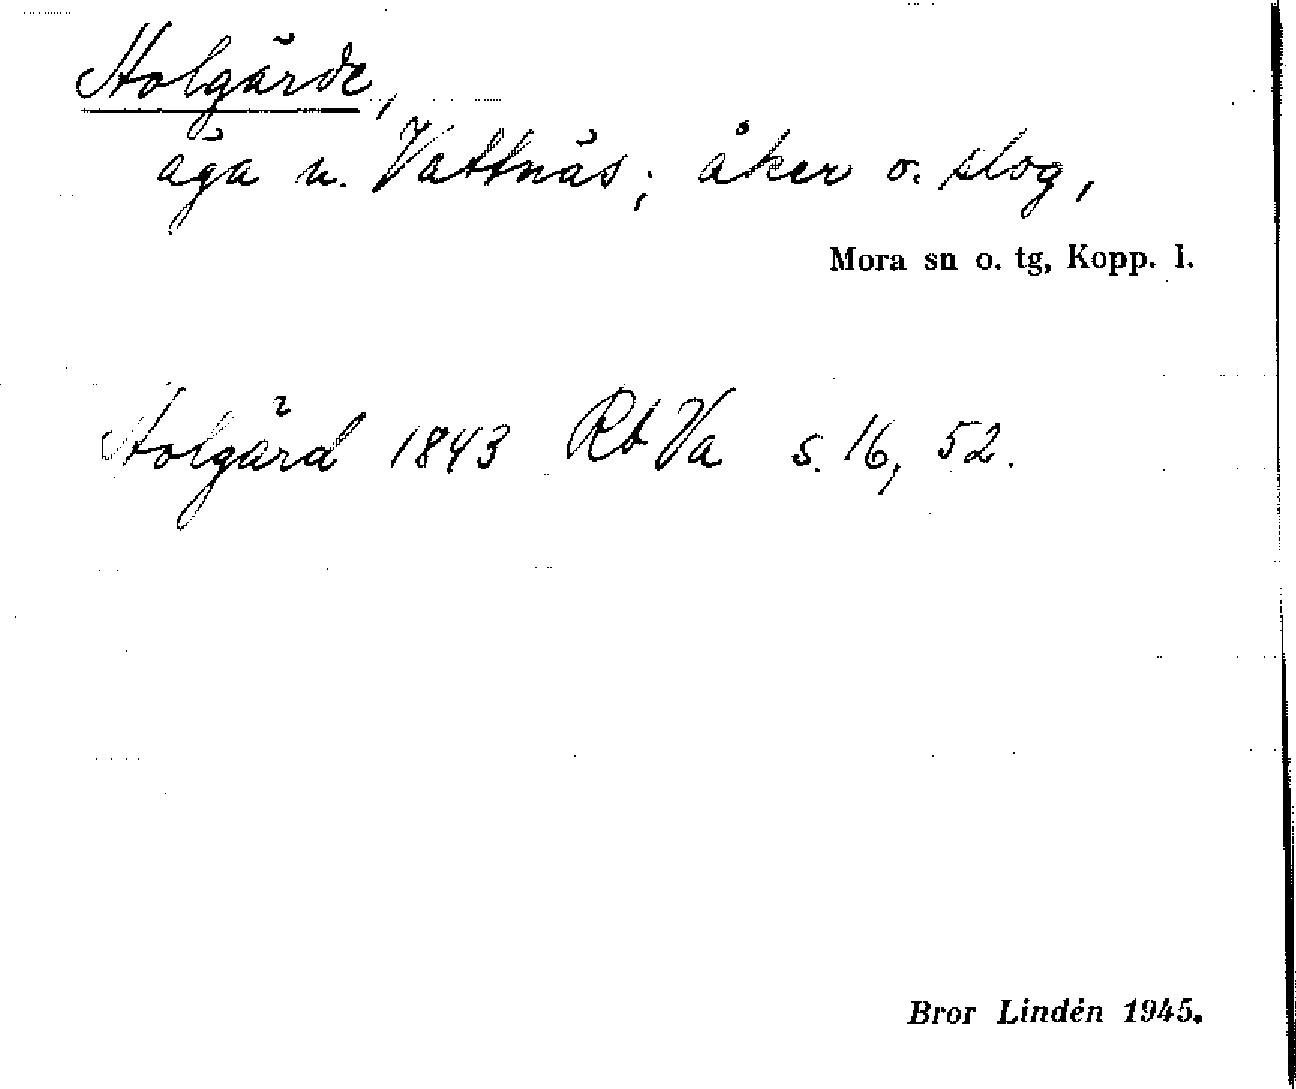 Stolgärde,
äga u. Vattnäs; åker o. slog,
Mora sn o. tg, Kopp. l.
Stolgärd 1843 Rb Va s. 16, 52.
Bror Lindén 1945.